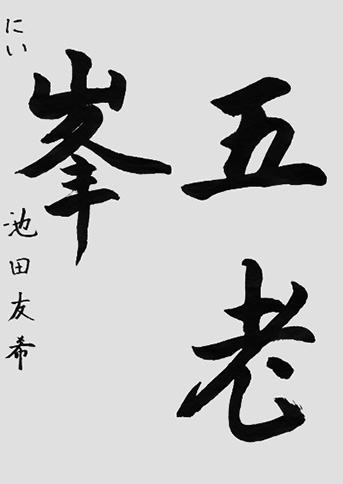 五老
峯
にい 池田友希